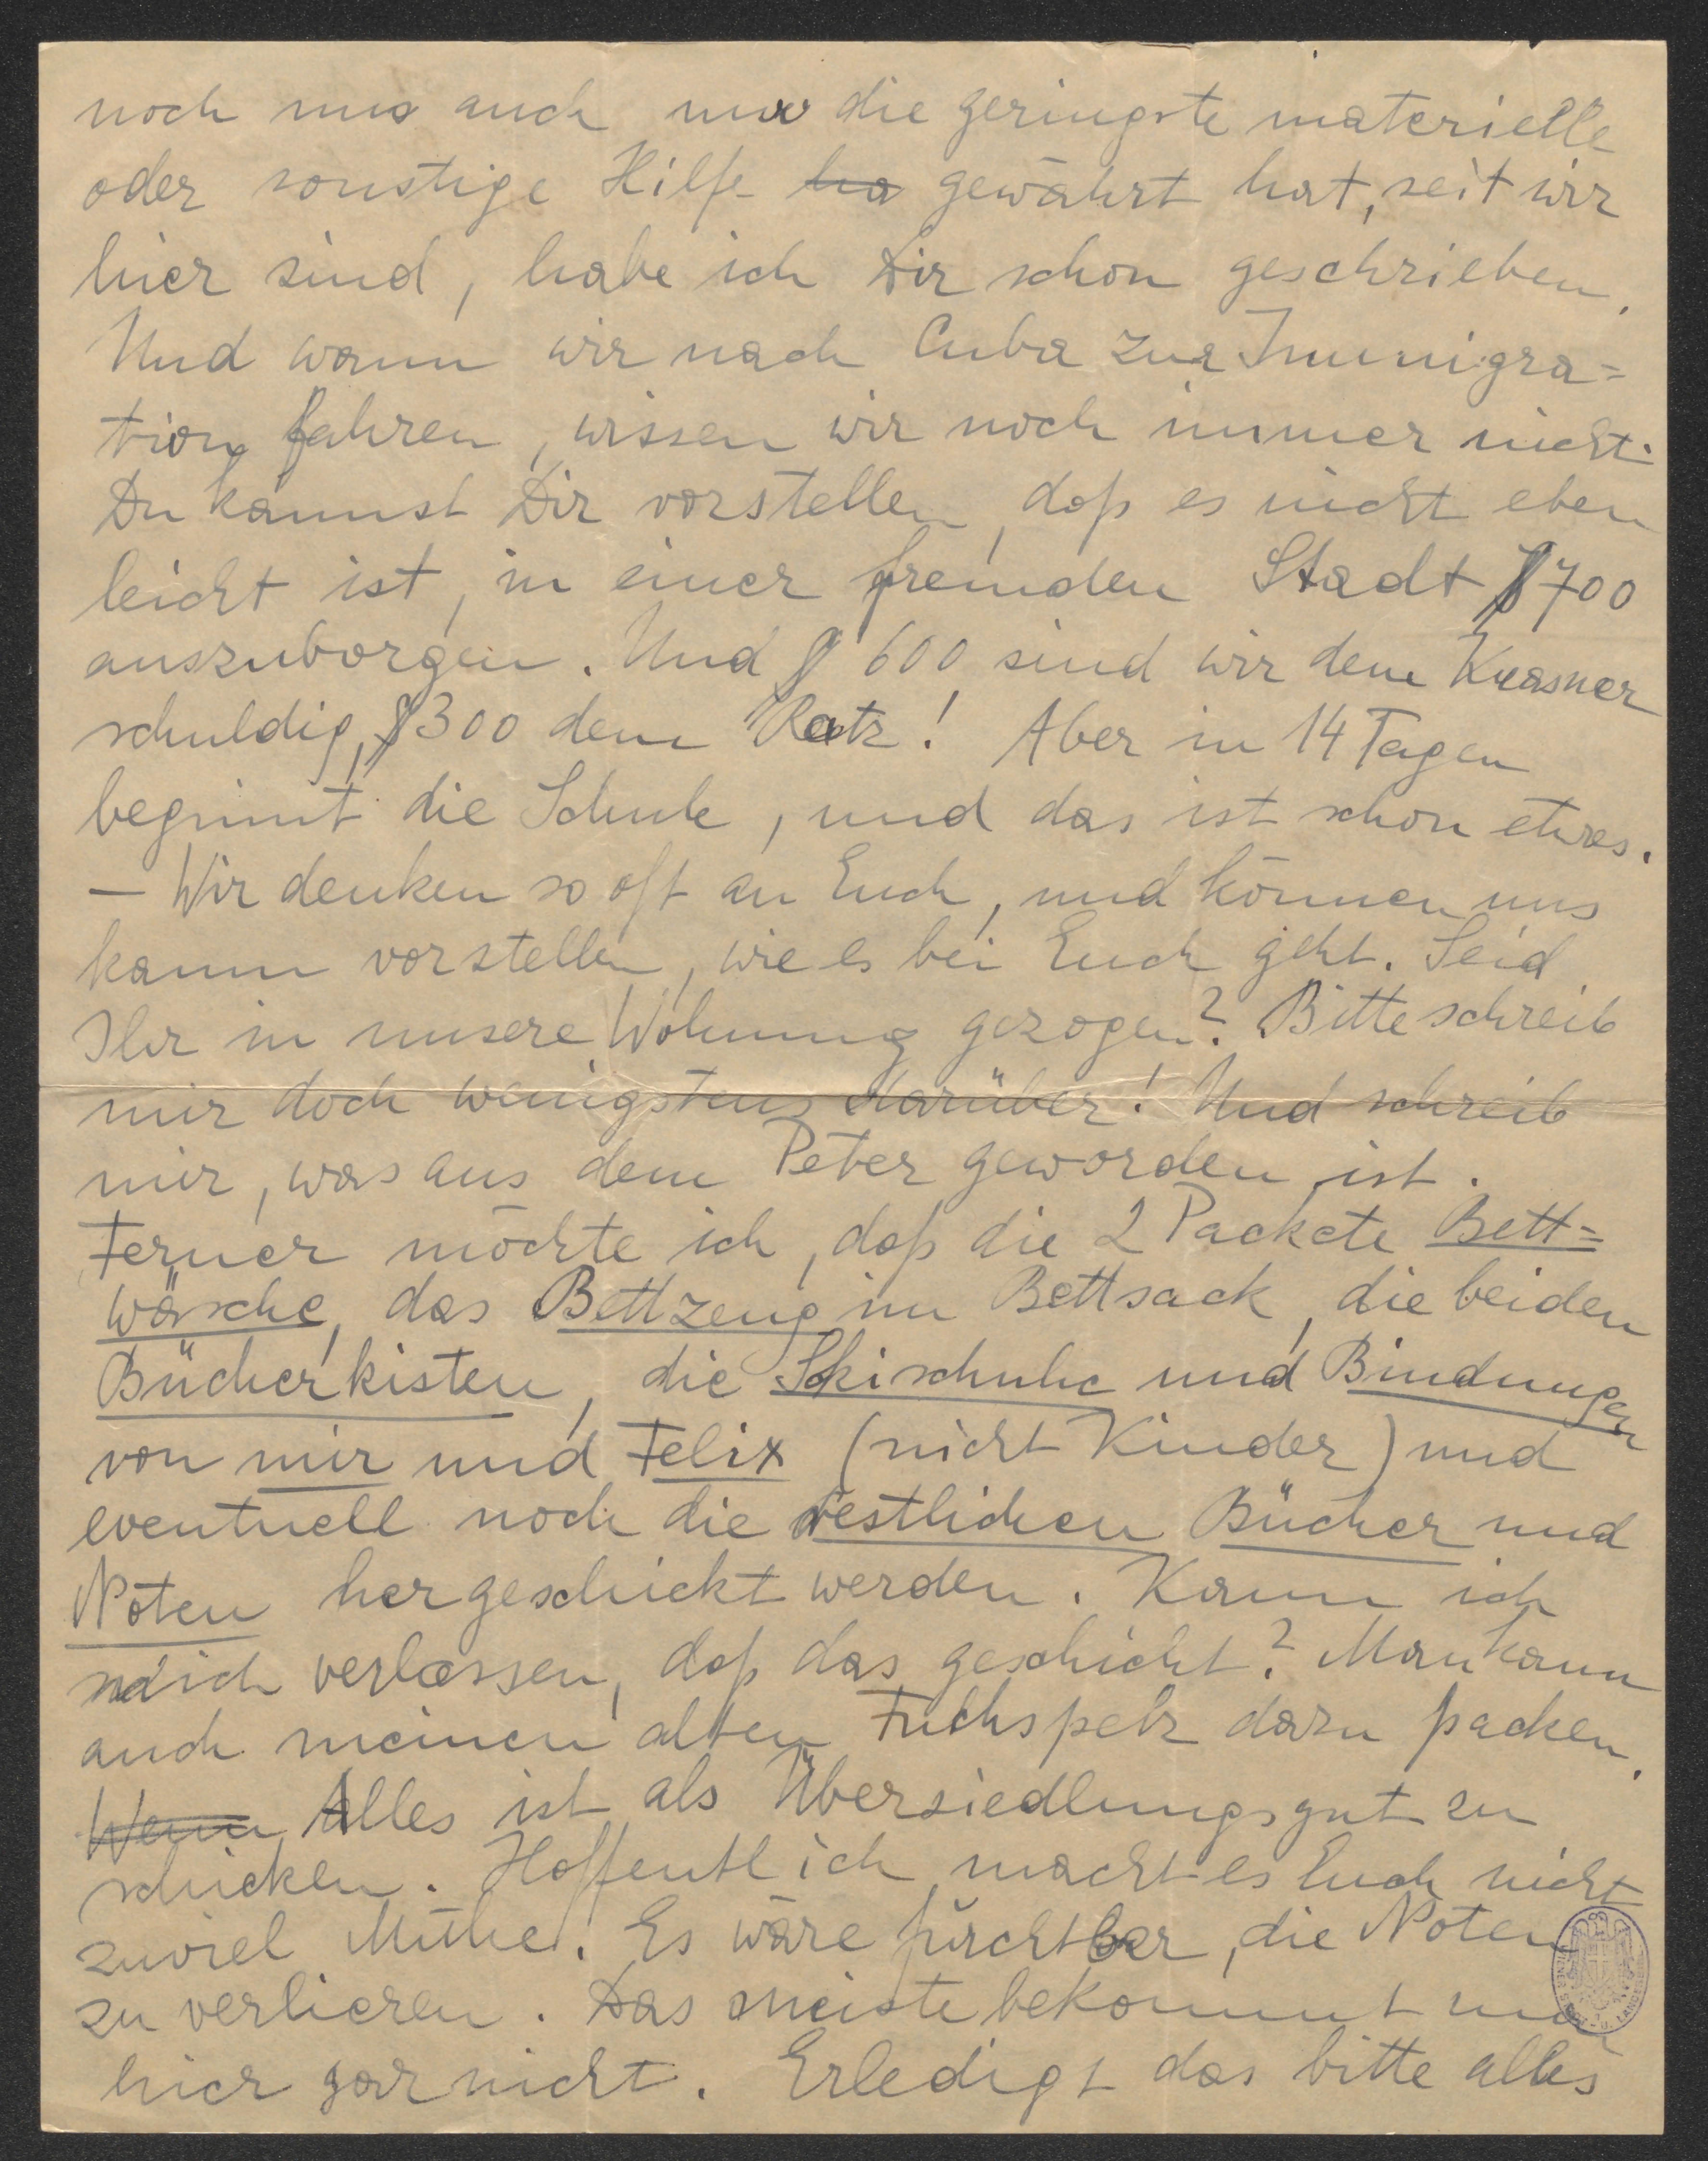 noch uns auch nur die geringste materielle
oder sonstige Hilfe ha gewährt hat, seit wir
hier sind, habe ich Dir schon geschrieben.
Und wann wir nach Cuba zur Immigra=
tion fahren, wissen wir noch immer nicht.
Du kannst Dir vorstellen, daß es nicht eben
leicht ist, in einer fremden Stadt $700
auszuborgen. Und $ 600 sind wir dem Krasner
schuldig, $300 dem Ratz! Aber in 14 Tagen
beginnt die Schule, und das ist schon etwas.
— Wir denken so oft an Euch, und können uns
kaum vorstellen, wie es bei Euch geht. Seid
Ihr in unsere Wohnung gezogen? Bitte schreib
mir doch wenigstens darüber! Und schreib
mir, was aus dem Peter geworden ist.
Ferner möchte ich, daß die 2 Packete Bett=
wäsche, das Bettzeug im Bettsack, die beiden
Bücherkisten, die Skischuhe und Bindungen
von mir und Felix (nicht Kinder) und
eventuell noch die restlichen Bücher und
Noten hergeschickt werden. Kann ich
mich verlassen, daß das geschieht? Man kann
auch meinen alten Fuchspelz dazu packen.
Wenn Alles ist als Übersiedlungsgut zu
schicken. Hoffentlich macht es Euch nicht
zuviel Mühe! Es wäre furchtbar, die Noten
zu verlieren. Das meiste bekommt man
hier gar nicht. Erledigt das bitte alles